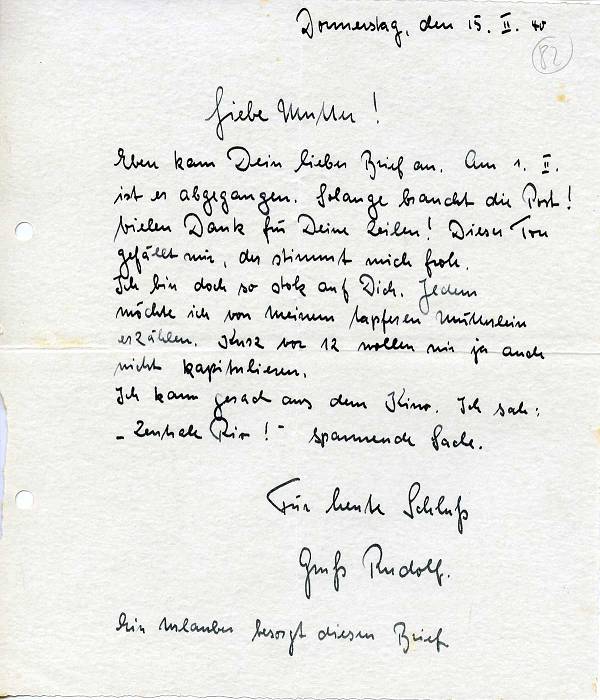 Donnerstag, den 15. II. 40
82
Liebe Mutter!
Eben kam Dein lieber Brief an. Am 1. II.
ist er abgegangen. Solange braucht die Post!
Vielen Dank für Deine Zeilen! Dieser Ton
gefällt mir, der stimmt mich froh.
Ich bin doch so stolz auf Dich. Jedem
möchte ich von meinem tapferen Mütterlein
erzählen. Kurz vor 12 wollen wir ja auch
nicht kapitulieren.
Ich kam gerad aus dem Kino. Ich sah:
"Zentrale Rio!" spannende Sache.
Für heute Schluß
Gruß Rudolf.
Ein Urlauber besorgt diesen Brief